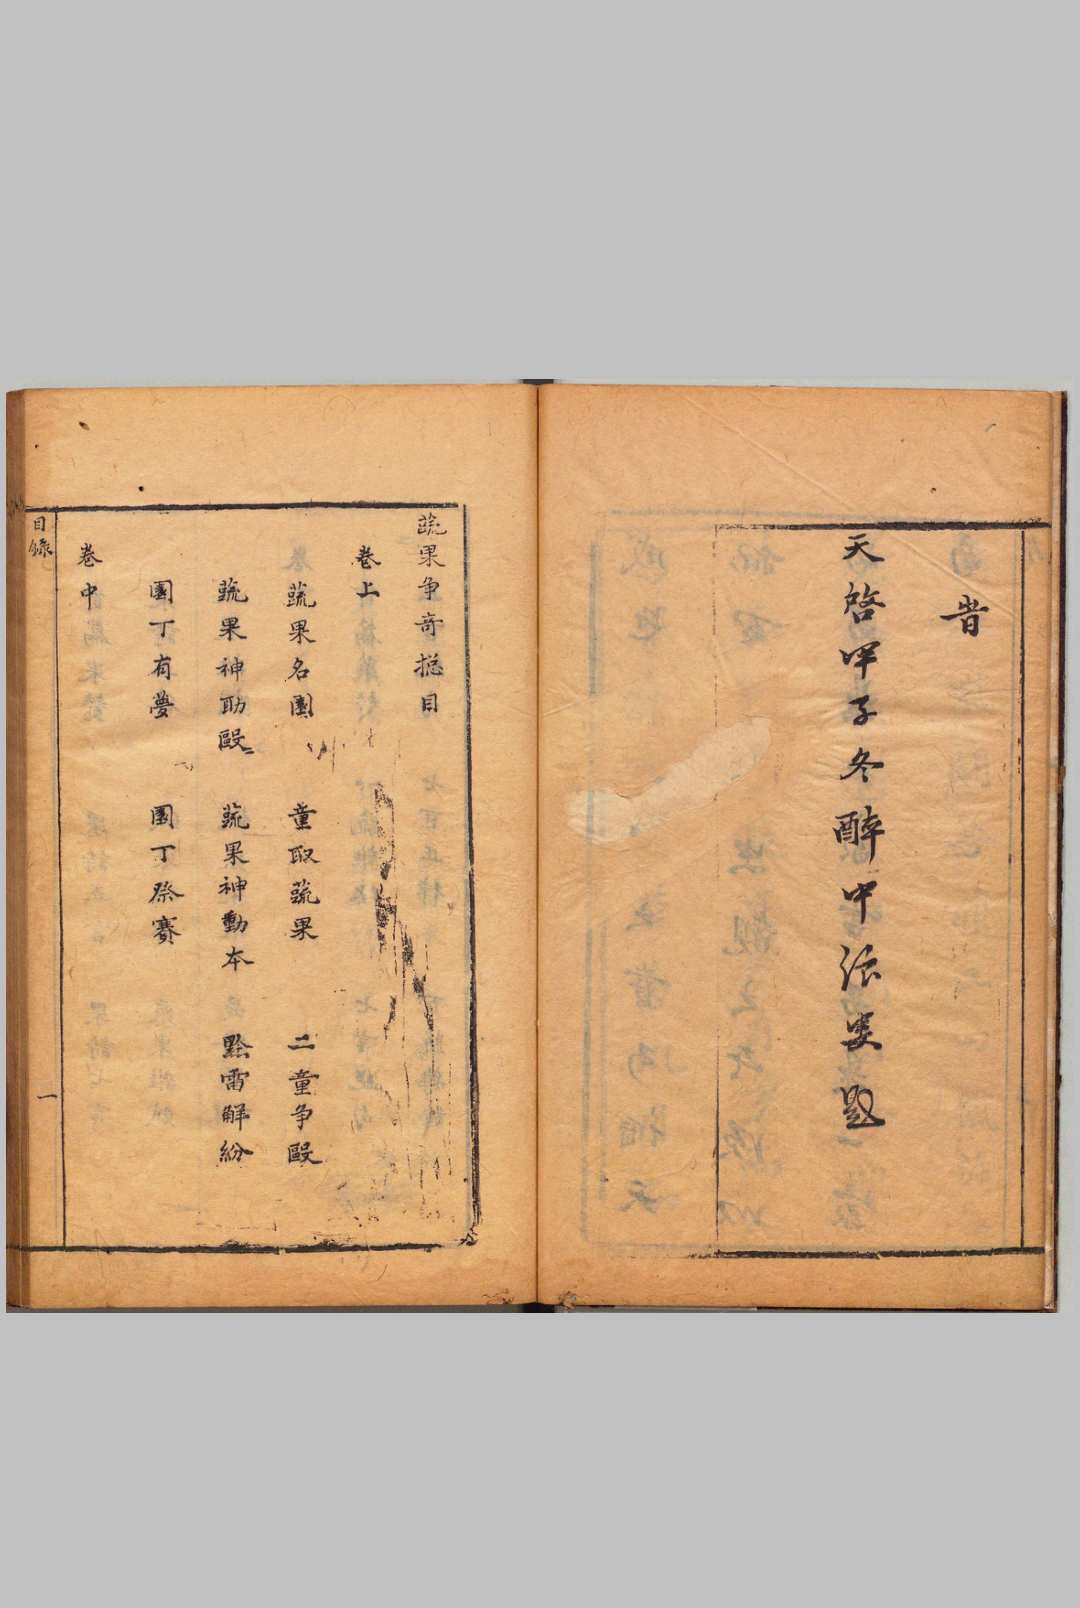 旹
天啓甲子冬醉中漫叟題
蔬果争奇摠目
卷上
蔬果名園 童取蔬果 二童争毆
蔬果神助毆 蔬果神動本 黔雷解紛
園丁有夢 園丁祭賽
卷中
目錄
一